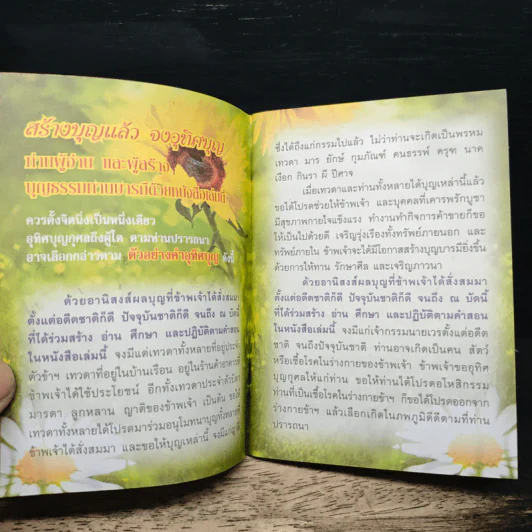 สร้างบุญแล้ว จงอุทิศบุญ
ท่านผู้อ่าน และผู้สร้าง
บุญธรรมทานบารมีด้วยหนังสือเล่มนี้
ควรตั้งจิตนิ่งเป็นหนึ่งเดียว
อุทิศบุญกุศลถึงผู้ใด ตามท่านปรารถนา
อาจเลือกกล่าวตาม ตัวอย่างคำอุทิศบุญ ดังนี้
ด้วยอานิสงส์ผลบุญที่ข้าพเจ้าได้สั่งสมมา
ตั้งแต่อดีตชาติก็ดี ปัจจุบันชาติก็ดี จนถึง ณ บัดนี้
ที่ได้ร่วมสร้าง อ่าน ศึกษา และปฏิบัติตามคำสอน
ในหนังสือเล่มนี้ จงมีแด่เทวดาทั้งหลายที่อยู่ประจำ
ตัวข้าฯ เทวดาที่อยู่ในบ้านเรือน อยู่ในร้านค้าอาคารที่
ข้าพเจ้าได้ใช้ประโยชน์ อีกทั้งเทวดาประจำตัวบิดา
มารดา ลูกหลาน ญาติของข้าพเจ้า เป็นต้น ขอให้
เทวดาทั้งหลายได้โปรดมาร่วมอนุโมทนาบุญทั้งหลายที่
ข้าพเจ้าได้สั่งสมมา และขอให้บุญเหล่านี้ จงมีแก่
ซึ่งได้ถึงแก่กรรมไปแล้ว ไม่ว่าท่านจะเกิดเป็นพรหม
เทวดา มาร ยักษ์ กุมภัณฑ์ คนธรรพ์ ครุฑ นาค
เงือก กินรา ผี ปีศาจ
เมื่อเทวดาและท่านทั้งหลายได้บุญเหล่านี้แล้ว
ขอได้โปรดช่วยให้ข้าพเจ้า และบุคคลที่เคารพรักบูชา
มีสุขภาพกายใจแข็งแรง ทำงานทำกิจการค้าขายก็ขอ
ให้เป็นไปด้วยดี เจริญรุ่งเรืองทั้งทรัพย์ภายนอก และ
ทรัพย์ภายใน ข้าพเจ้าจะได้มีโอกาสสร้างบุญบารมียิ่งขึ้น
ด้วยการให้ทาน รักษาศีล และเจริญภาวนา
ด้วยอานิสงส์ผลบุญที่ข้าพเจ้าได้สั่งสมมา
ตั้งแต่อดีตชาติก็ดี ปัจจุบันชาติก็ดี จนถึง ณ บัดนี้
ที่ได้ร่วมสร้าง อ่าน ศึกษา และปฏิบัติตามคำสอน
ในหนังสือเล่มนี้ จงมีแก่เจ้ากรรมนายเวรตั้งแต่อดีต
ชาติ จนถึงปัจจุบันชาติ ท่านอาจเกิดเป็นคน สัตว์
หรือเชื้อโรคในร่างกายของข้าพเจ้า ข้าพเจ้าขออุทิศ
บุญกุศลให้แก่ท่าน ขอให้ท่านได้โปรดอโหสิกรรม
ท่านที่เป็นเชื้อโรคในร่างกายข้าฯ ก็ขอได้โปรดออกจาก
ร่างกายข้าฯ แล้วเลือกเกิดในภพภูมิดีดีตามที่ท่าน
ปรารถนา